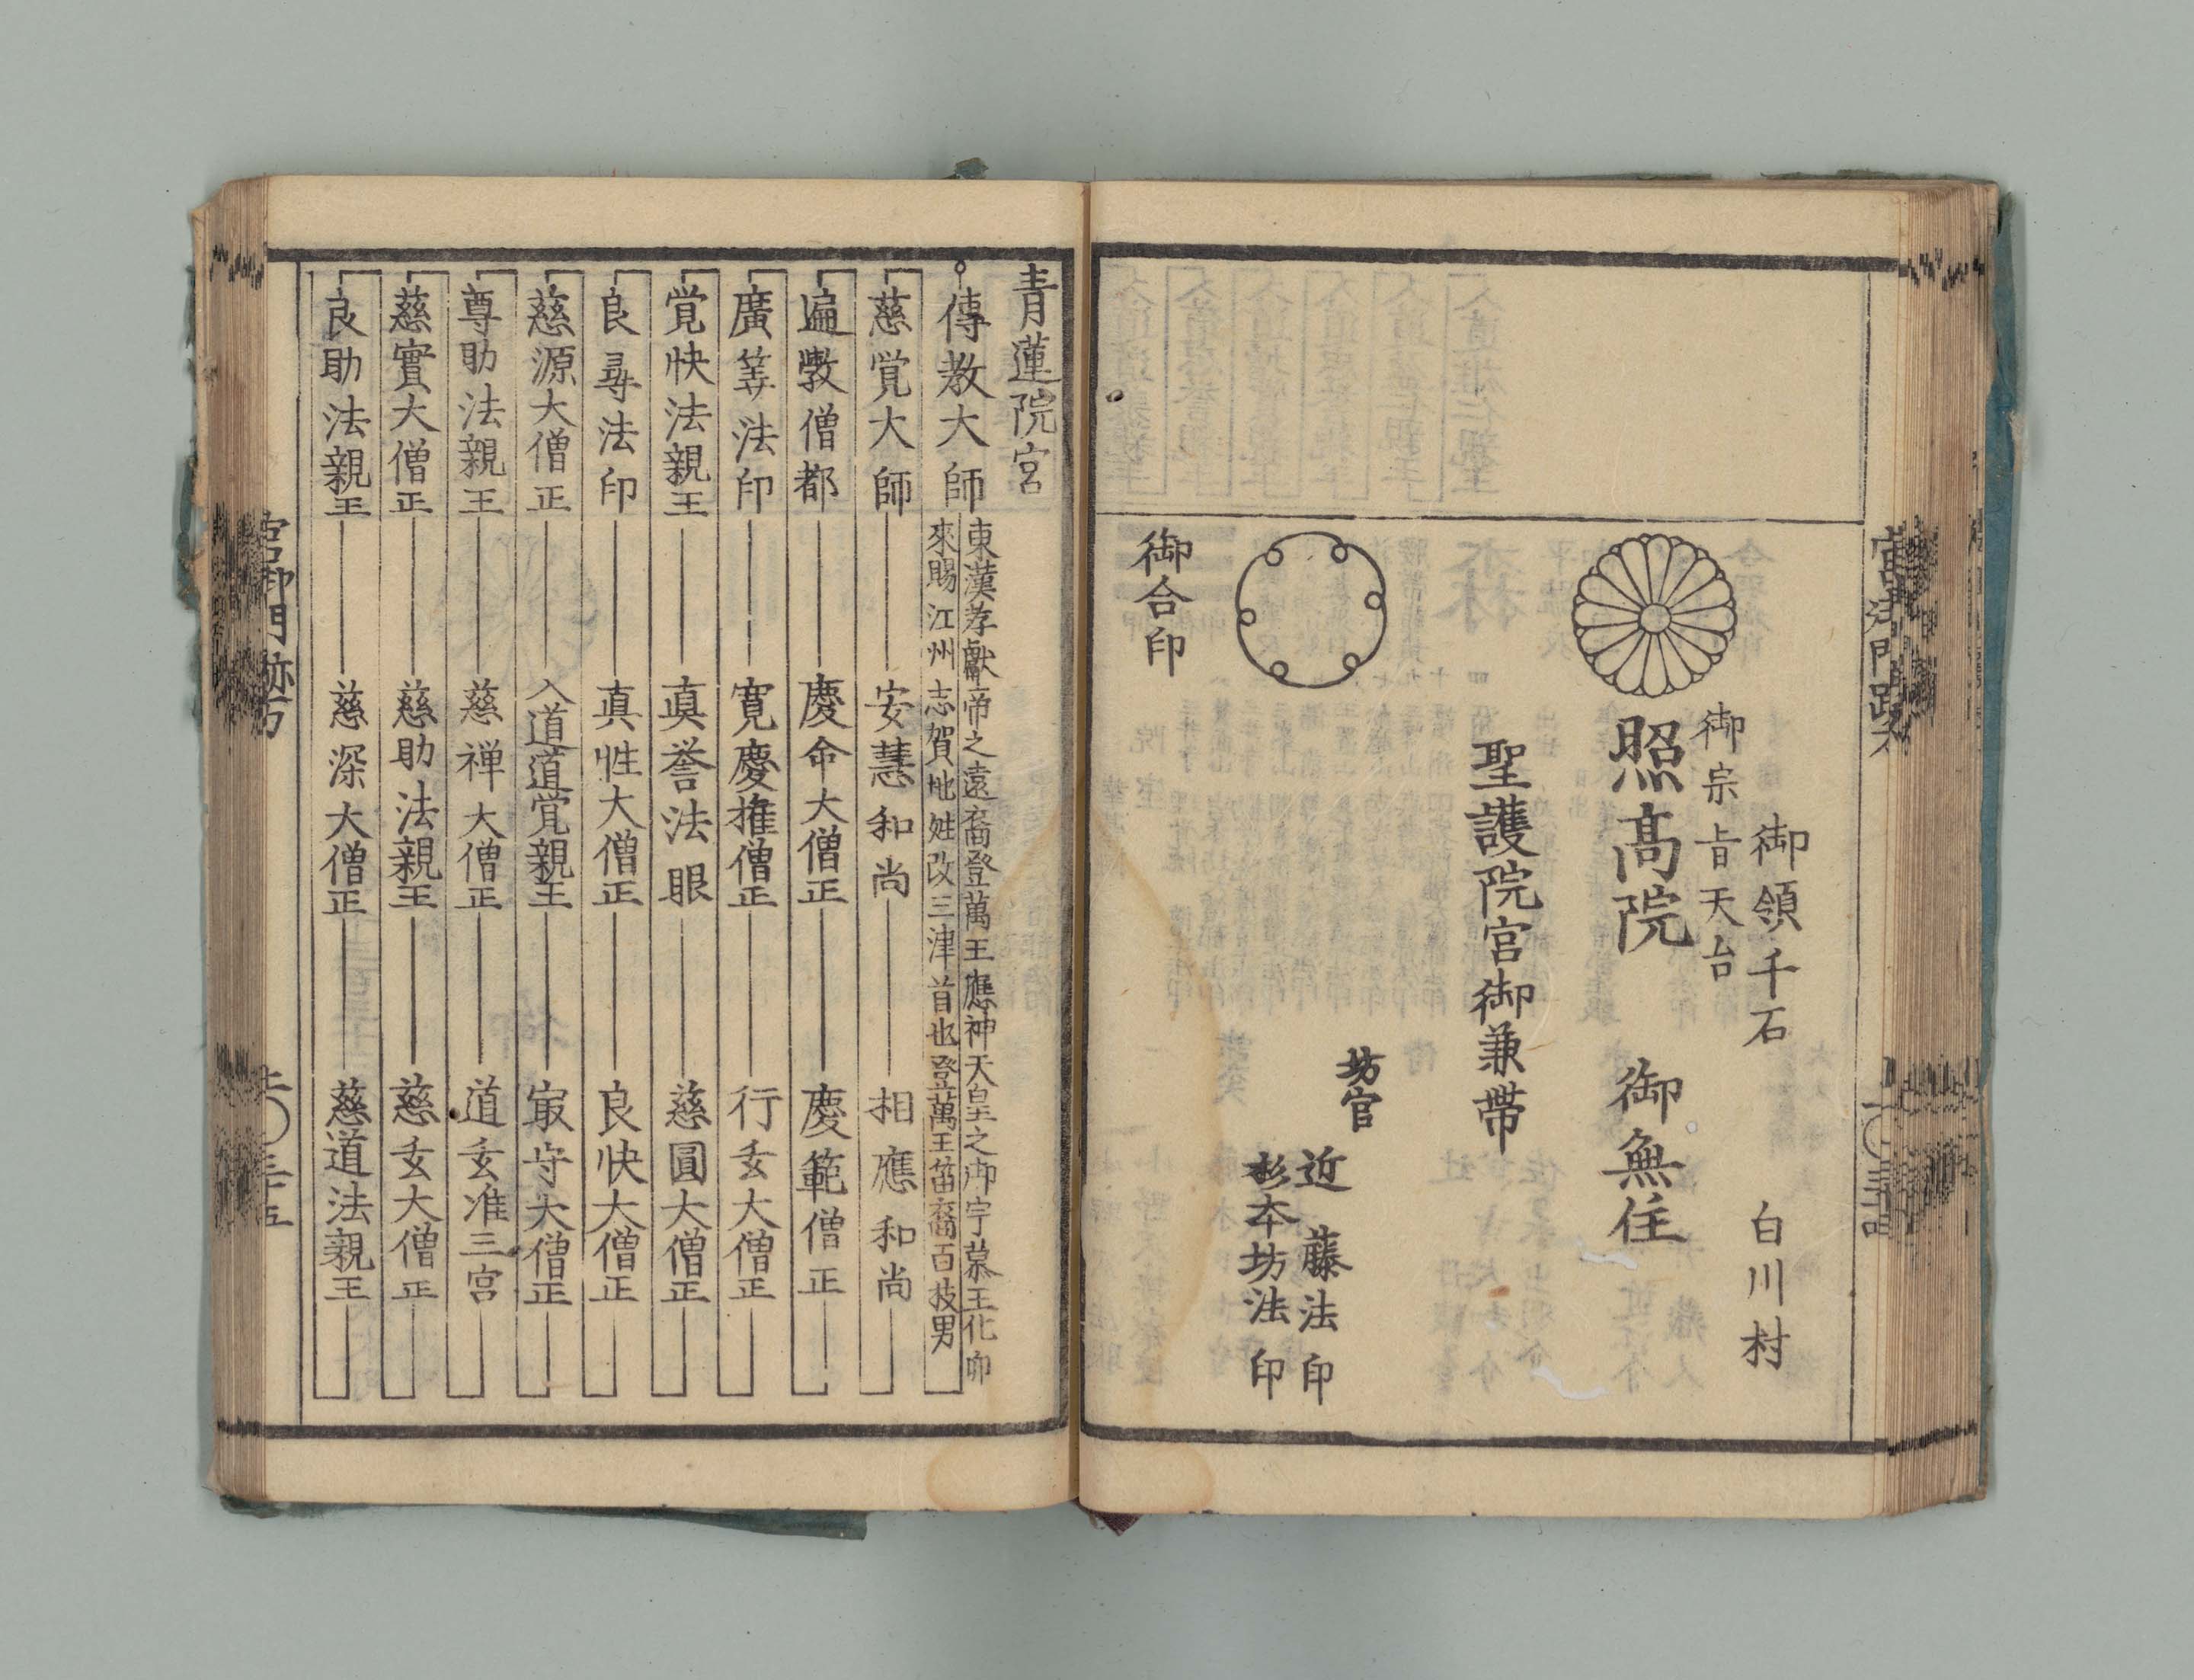 御領千石
白川村
御宗旨天台
照高院
御無住
聖護院宮御兼帯
坊官
近藤法印
杉本坊法印
御合印
青蓮院宮
傳教大師
東漢孝獻帝之遠裔登萬王應神天皇之御宇慕王化
來賜江州志賀地姓改三津首也登萬王苗裔百枝男
慈覚大師 安慧和尚 相應和尚
遍斆僧都 慶命大僧正 慶範僧正
廣筭法印 寛慶権僧正 行玄大僧正
覚快法親王 真誉法眼 慈圓大僧正
良尋法印 真性大僧正 良快大僧正
慈源大僧正 入道道覚親王 冣守大僧正
尊助法親王 慈禅大僧正 道玄准三宮
慈實大僧正 慈助法親王 慈玄大僧正
良助法親王 慈深大僧正 慈道法親王
宮御門跡方